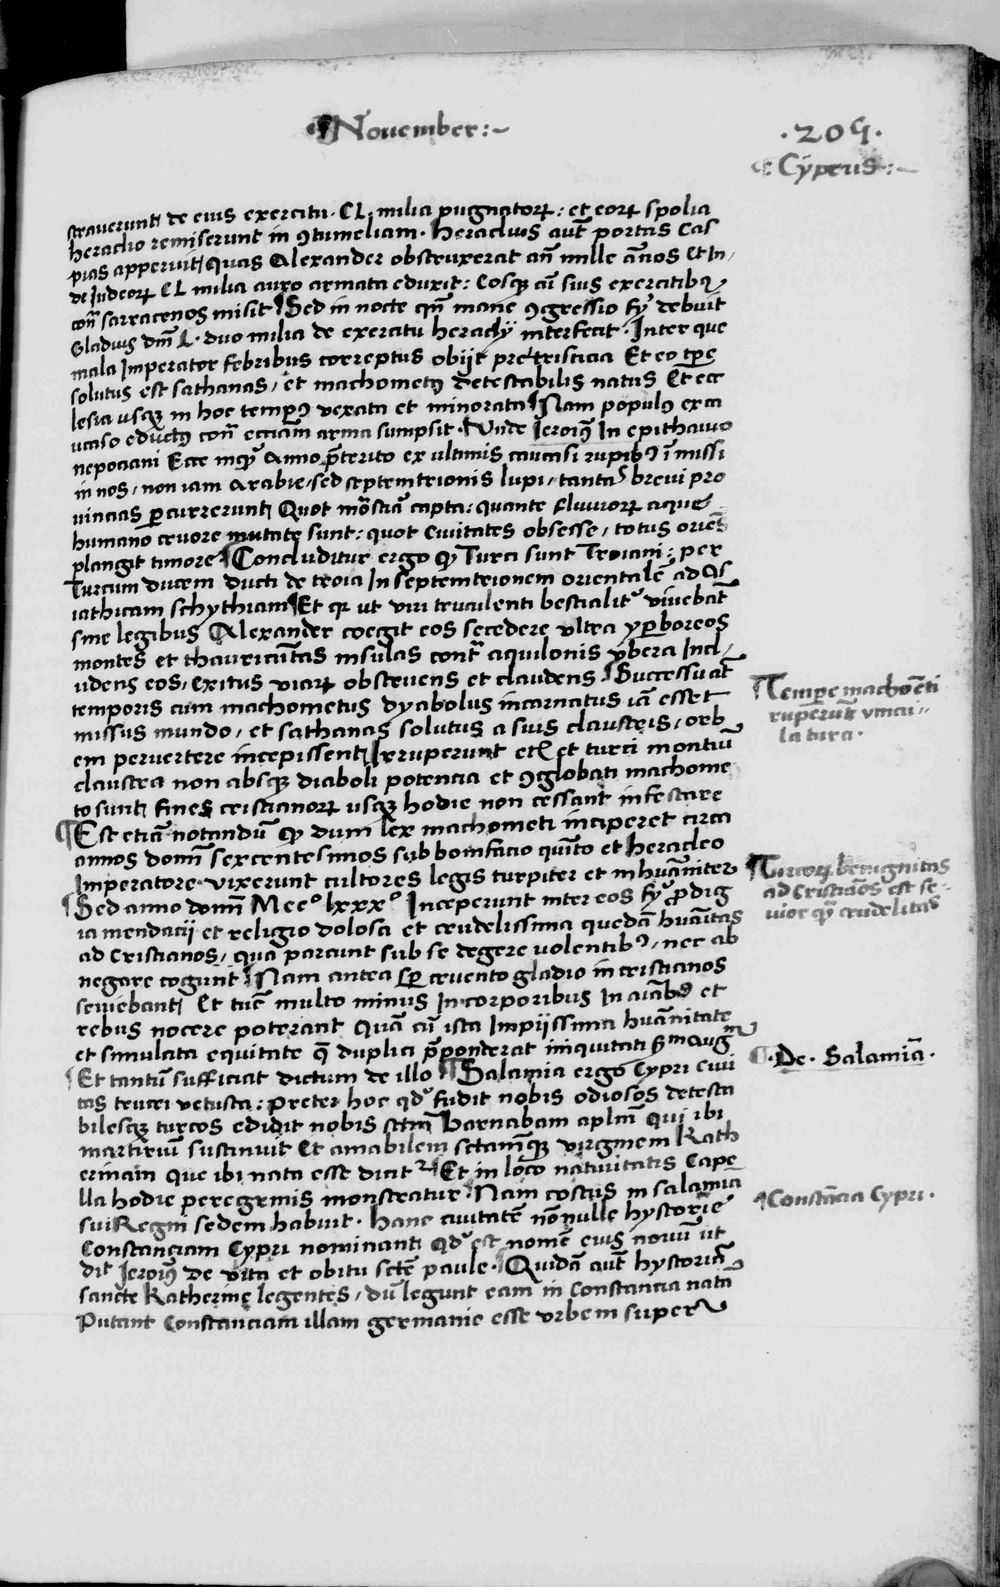 November:~
·205·
Cÿprus:~
straverunt de eius exercitu · CL · milia pugnatorꝝ: et eorꝝ spolia
heraclio remiserunt in ꝯtumeliam · heraclius aut̄ portas Cas
pias apperuit Quas Alexander obstruxerat an̄ mille an̄os Et In,
de Judeorꝝ CL milia auro armata eduxit: Eosqꝫ cū suis exercitibꝫ
con̄ sarracenos misit Sed in nocte qn̄ mane ꝯgressio debuit
Gladius dn̄i · duo milia de exercitu heraclÿ interfecit · Inter que
mala Imperator febribus correptus obijt pre tristicia Et eo tꝑe
solutus est sathanas, et machometꝰ detestabilis natus Et ecc
lesia usqꝫ in hoc tempꝰ vexata et minorata Nam populꝰ ex ca
ucaso eductꝰ con̄ ecciam arma sumpsit · Unde Jeroīꝰ In epithavio
nepociani Ecce inqͥ Anno p̄terito ex ultimis caucasi rupibꝰ īmissi
in nos, non iam Arabie, sed septemtrionis lupi, tantas brevi pro
vincias ꝑcurrerunt Quot mōstia capta: quante fluviorꝝ aque
humano cruore mutate sunt: quot Civitates obsesse, totus oriēs
plangit timore Concluditur ergo ꝙ Turci sunt Troiani: per
Turcum ducem ducti de troia In septemtrionem orientalē ad As
iathicam schythiam Et qꝛ ut viri truculenti bestialitꝰ vivebāt
sine legibus Alexander coegit eos secedere vltra yꝑboreos
montes et thauricūtas insulas contͣ aquilonis v̄bera Incl,
udens eos, Exitus viarꝝ obstruens et claudens Successu aūt
temporis cum machometus dyabolus incarnatus iā esset
missus mundo, et sathanas solutus a suis claustris, orb
em pervertere incepissent Irruperunt et et turci montiū
claustra non absqꝫ diaboli potencia et ꝯglobati machome
to sunt fines cristianorꝝ usqꝫ hodie non cessant infestare
Est etiā notandū ꝙ dum lex machometi inciperet circa
annos domī sexcentesimos sub bonifacio quīto et heracleo
Imperatore · vixerunt cultores legis turpiter et inhuāniter
Sed anno domī Mccͦ lxxxͦ Inceperunt inter eos prodig
ia mendacij et religio dolosa et crudelissima quedā huāitas
ad Cristianos, qua parcunt sub se degere volentibꝰ, nec ab
negare cogunt Nam antea semper cruento gladio in cristianos
seviebant Et tūc multo minus In corporibus In aīabꝰ et
rebus nocere poterant Quā cū ista Impijssima huānitate
et simulata equitate que duplici p̄ponderat iniquitati scdm augm
Et tantū sufficiat dictum de illo Salamia ergo Cypri civi
tas teucri vetusta: preter hoc qdͦ fudit nobis odiosos detesta
bilesqꝫ turcos edidit nobis sctm̄ Barnabam aplm̄ qui ibi
martiriū sustinuit Et amabilem sctamqꝫ virginem Kath
erinam que ibi nata esse dicitꝰ Et in loco nativitatis Cape
lla hodie peregrinis monstratur · Nam costus in salamia
sui Regni sedem habuit · hanc civitatē nōnulle hystorie
Constanciam Cypri nominant qdͦ est nomē eius novū ut
dit Jeroīꝰ de vita et obitu scte paule · Quidā aut̄ hystoriā
sancte Katherine legentes, dū legunt eam in Constancia natā
Putant Constanciam illam germanie esse vrbem super
Tempore machomēti
ruperunt vincu//
la turci ·
Turcorꝝ benignitas
ad Cristiāos est se-
vior qͣ crudelitas
·De· Salamiā·
Constācia Cypri·